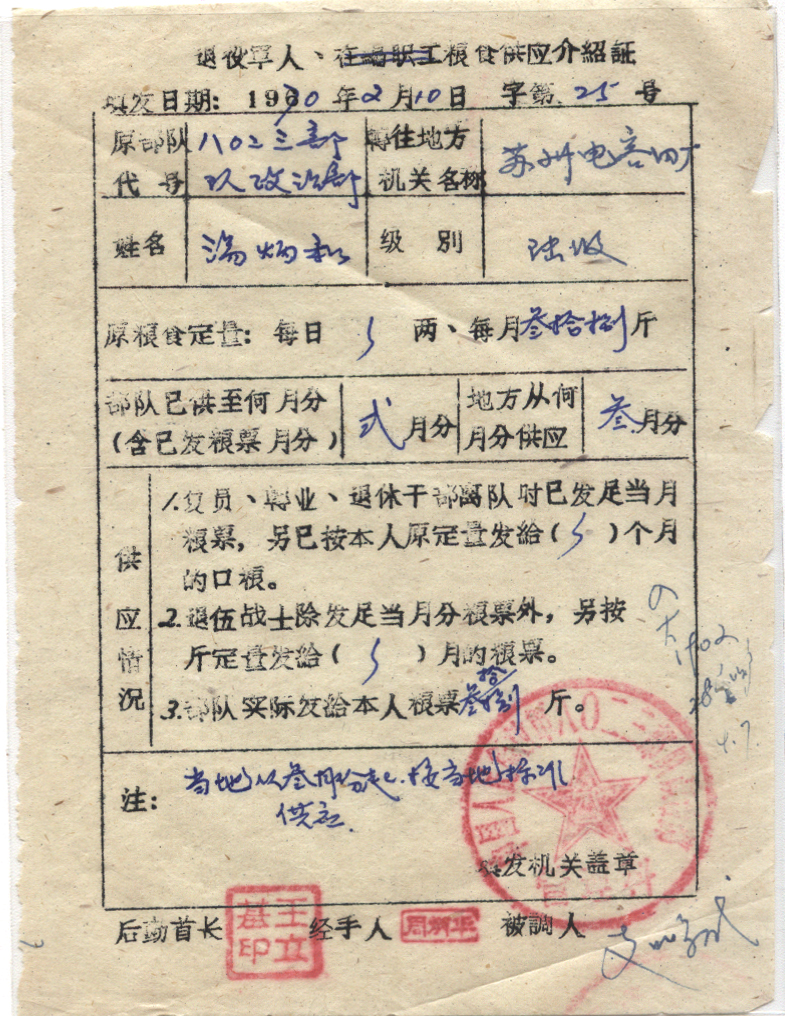 退役軍人、在职职工粮食供应介紹証
填发日期: 1970年2月10日 字第 25 号
原部队代号 八〇二三部队政治部 轉往地方机关名称 苏州电容四厂
姓名 汤炳和 级别 陆级
原粮食定量: 每日 两、每月叁拾捌斤
部队已供至何月分(含已发粮票月分) 弍月分 地方从何月分供应 叁月分
供应情况
1.复员、轉业、退休干部离队时已发足当月
粮票, 另已按本人原定量发给( )个月
的口粮。
2.退伍战士除发足当月分粮票外, 另按
斤定量发给( )月的粮票。
3.部队实际发给本人粮票叁拾捌斤。
注: 当地从叁月份起.按当地标准
供应.
填发机关盖章
后勤首长 王立基印 经手人 被調人